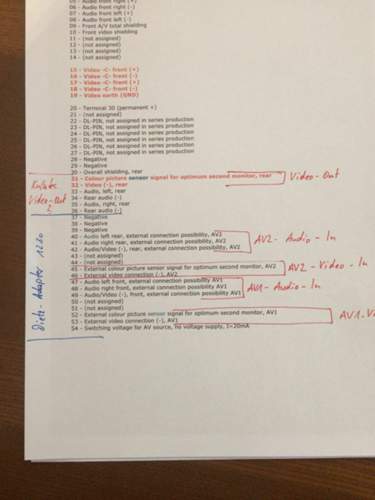 05 - Audio front right (+)
06 - Audio front right (-)
07 - Audio front left (+)
08 - Audio front left (-)
09 - Front A/V total shielding
10 - Front video shielding
11 - (not assigned)
12 - (not assigned)
13 - (not assigned)
14 - (not assigned)
15 - Video -C- front (+)
16 - Video -C- front (-)
17 - Video -C- front (+)
18 - Video -C- front (-)
19 - Video earth (GND)
20 - Terminal 30 (permanent +)
21 - (not assigned)
22 - DL-PIN, not assigned in series production
23 - DL-PIN, not assigned in series production
24 - DL-PIN, not assigned in series production
25 - DL-PIN, not assigned in series production
26 - DL-PIN, not assigned in series production
27 - DL-PIN, not assigned in series production
28 - Negative
29 - Negative
30 - Overall shielding, rear
31 - Colour picture sensor signal for optimum second monitor, rear
Video-Out
32 - Video (-), rear
33 - Audio, left, rear
34 - Rear audio (-)
35 - Audio, right, rear
36 - Rear audio (-)
Video-Out
2
37 - Negative
38 - Negative
39 - Negative
40 - Audio left rear, external connection possibility, AV2
41 - Audio right rear, external connection possibility, AV2
42 - Audio/Video (-), rear, external connection possibility, AV2
AV2 - Audio - In
43 - (not assigned)
44 - (not assigned)
45 - External colour picture sensor signal for optimum second monitor, AV2
46 - External video connection (-), AV2
AV2 - Video - In
47 - Audio left front, external connection possibility AV1
48 - Audio right front, external connection possibility AV1
49 - Audio/Video (-), front, external connection possibility AV1
AV1 - Audio - In
50 - (not assigned)
51 - (not assigned)
52 - External colour picture sensor signal for optimum second monitor, AV1
53 - External video connection (-), AV1
AV1 - Vi
54 - Switching voltage for AV source, no voltage supply, I<20mA
Dietz - Adapter 1230